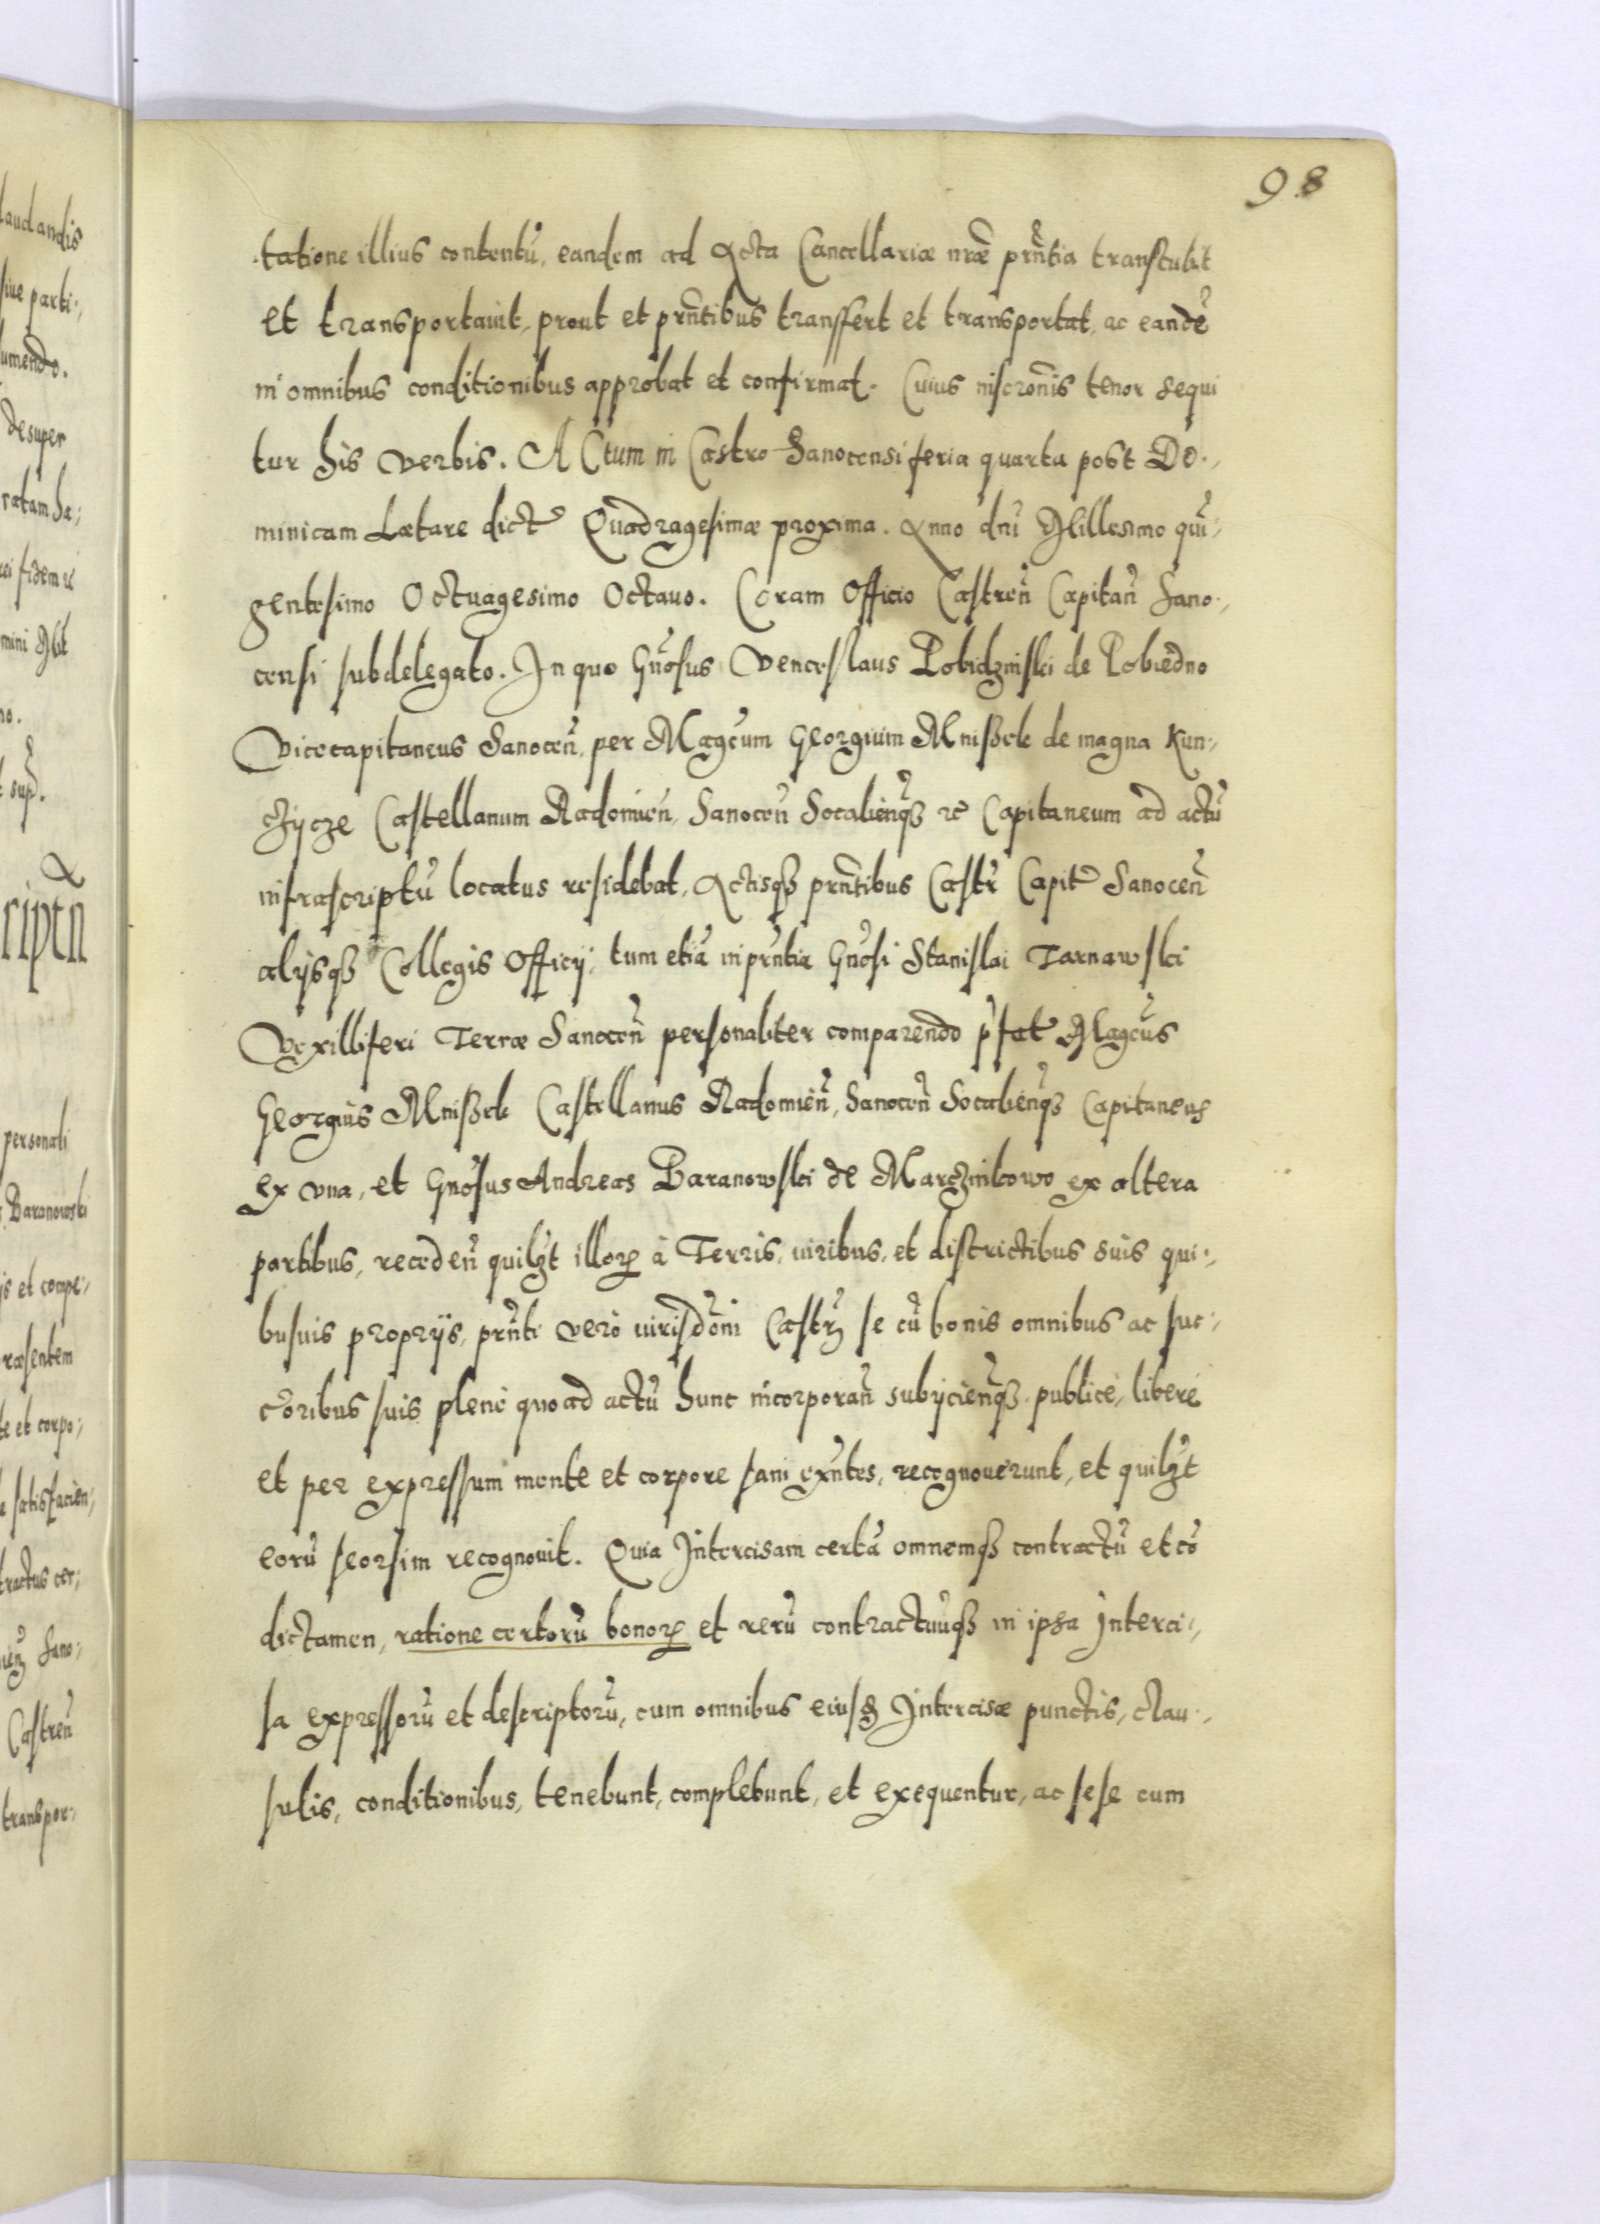 98
tatione illius contentũ, eandem ad Acta Cancellariæ nræ̃ prñtia transtulit
et transportauit, prout et prñtibus transfert et transportat, ac eandẽ
in omnibus conditionibus approbat et confirmat. Cuius inscrõnis tenor sequi
tur his verbis. ACtum in Castro Sanocensi feria quarta post Do,,
minicam Lætare dict̃ Quadragesimæ proxima. Anno dnĩ Millesimo quĩ,,
gentesimo Octuagesimo Octauo. Coram Officio Castreñ Capitañ Sano,,
censi subdelegato. In quo Gnõsus Venceslaus Pobidzinski de Pobiedno
Vicecapitaneus Sanoceñ, per Magcũm Georgium Mnißek de magna Kun,,
czÿcze Castellanum Radomieñ, Sanoceñ Socalieñqȝ etc Capitaneum ad actũ
infrascriptũ locatus residebat, Actisqȝ prñtibus Castr̃ Capit̃ Sanoceñ
alijsqȝ Collegis Officij, tum etiã in prñtia Gnõsi Stanislai Tarnawski
Vexilliferi Terræ Sanoceñ personaliter comparendo p̃fat̃ Magcũs
Georgius Mnißek Castellanus Radomieñ, Sanoceñ Socalieñqȝ Capitaneus
ex vna, et Gnõsus Andreas Baranowski de Marczinkowo ex altera
partibus, recedeñ quilȝt illorꝝ à Terris, iuribus, et districtibus suis qui,,
busuis proprijs, prñti verò iurisdõni Castrȝ̃ se cũ bonis omnibus ac suc,,
cõribus suis plenè quoad actũ hunc incorporañ subijcieñqȝ publicè, liberè
et per expressum mente et corpore sani exñtes, recognouerunt, et quilȝt
eorũ seorsim recognouit. Quia Intercisam certã omnemqȝ contractũ et cõ
dictamen, ratione certorũ bonorꝝ et rerũ contractuũqȝ in ipsa Interci,,
sa expressorũ et descriptorũ, cum omnibus eiusȡ Intercisæ punctis, clau,,
sulis, conditionibus, tenebunt, complebunt, et exequentur, ac sese cum